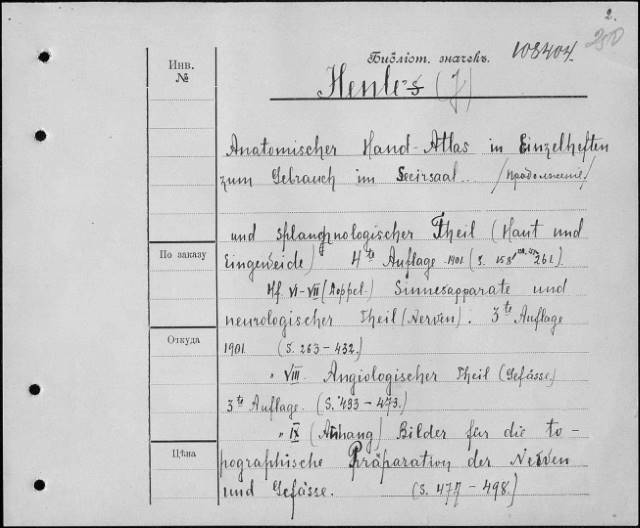 2.
Инв.
№
Библіот. значекъ.
108404.
250
Henle's (J)
Anatomischer Hand-Atlas in Einzelheften
zum Gebrauch im Secirsaal.. /Продолженіе/
und splangnologischer Theil (Haut und
Eingeweide) 4te Auflage 1901 (S. 158 261.
По заказу
Hf. VI-VII (Doppel.) Sinnesapparate und
neurologischer Theil (Nerven). 3te Auflage
Откуда
1901. (S. 263-432.)
" VIII. Angiologischer Theil (Gefässe)
3te Auflage. (S. 433-473.)
" IX (Anhang) Bilder für die to-
Цѣна
pographische Präparation der Nerven
und Gefässe. (S. 477-498.)